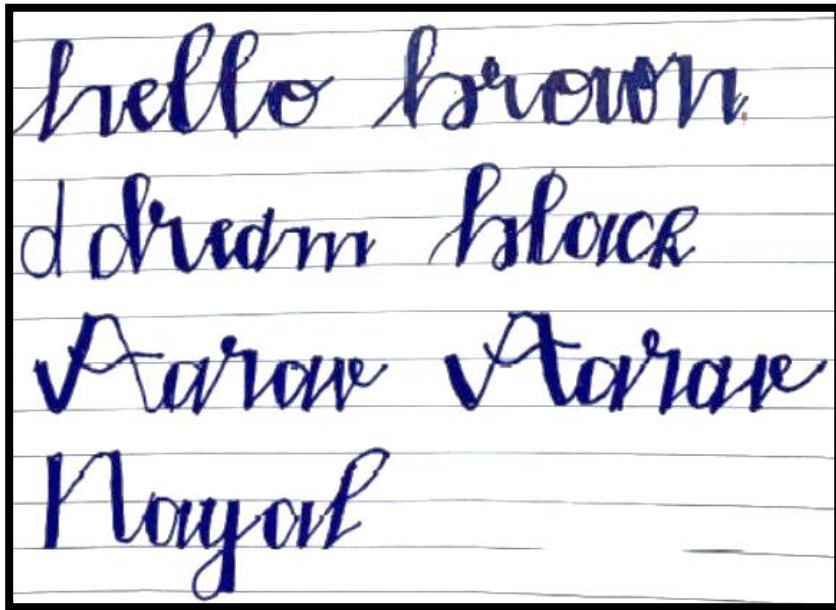 hello brown
d dream black
Aarav Aarav
Nayal